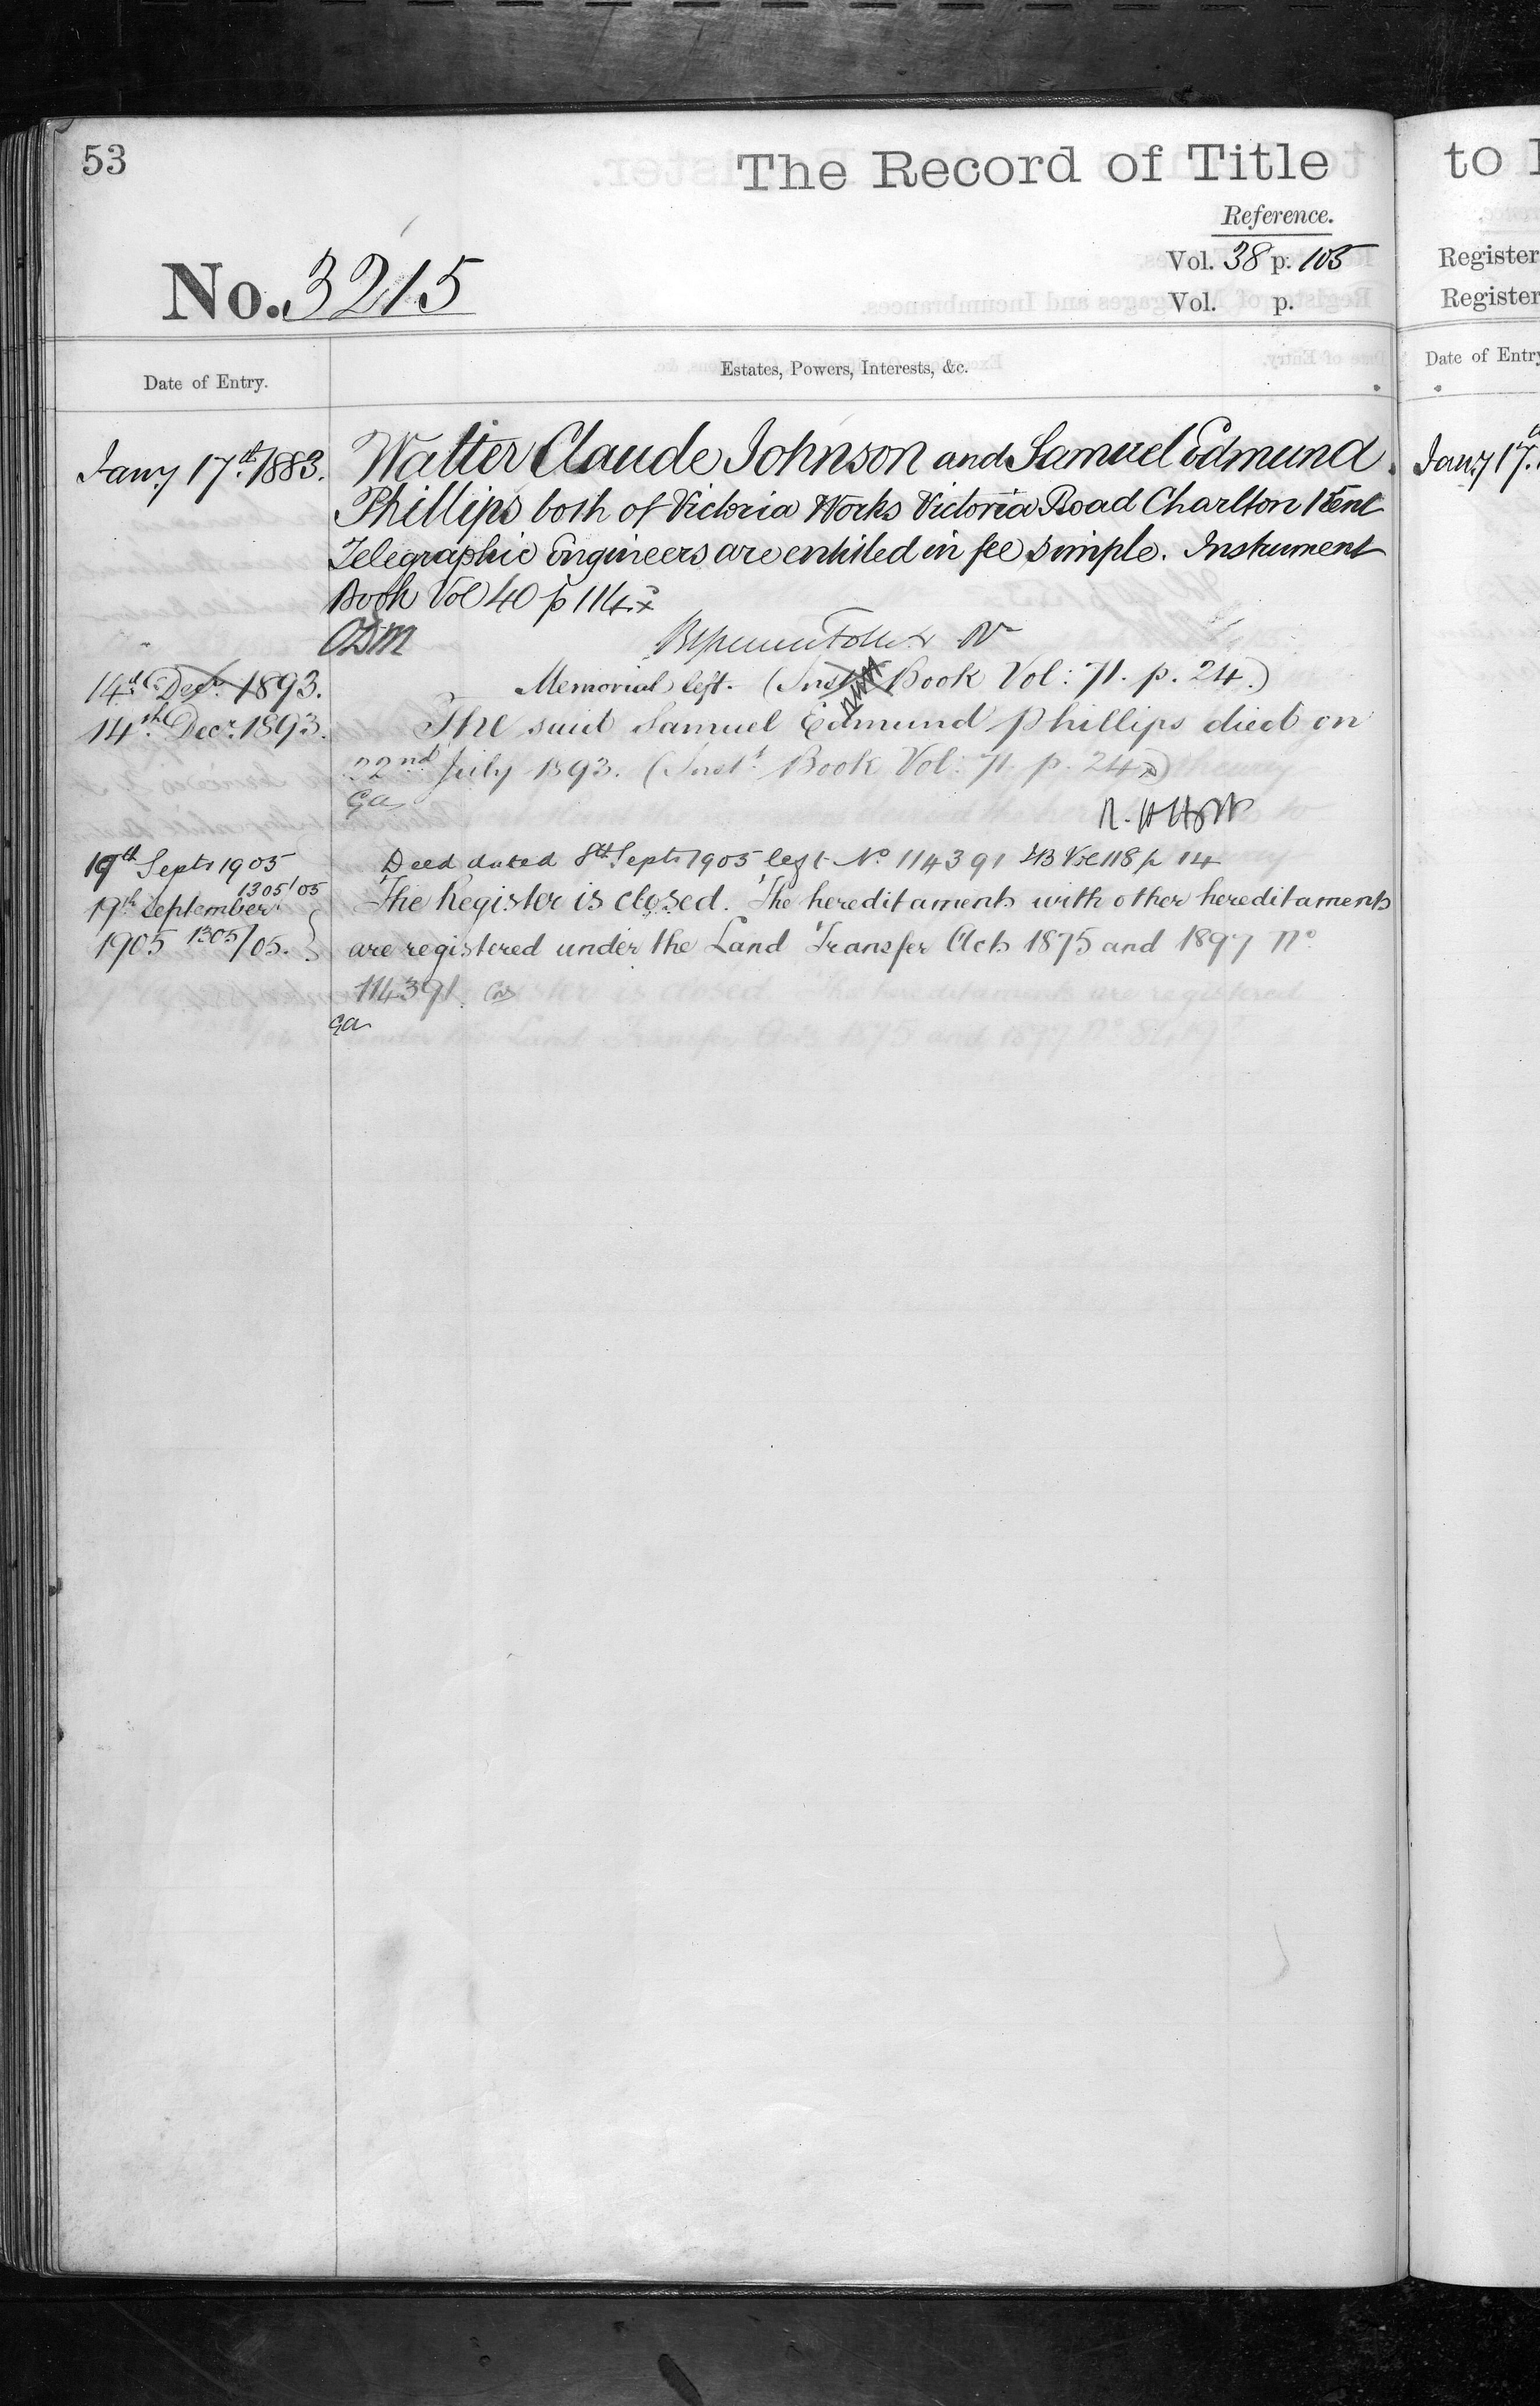 53
The Record of Title
Reference.
No. 3215
Vol. 38 p. 105
Vol. p.
Date of Entry.
Estates, Powers, Interests, &c.
Jany 17th 1883.
Walter Claude Johnson and Samuel Edmund
Phillips both of Victoria Works Victoria Road Charlton Kent
Telegraphic Engineers are entitled in fee simple. Instrument
Book Vol 40 p 114
14th Decr. 1893.
Memorial left. (Inst Book Vol: 71. p. 24.)
14th Decr. 1893.
The said Samuel Edmund Phillips died on
22nd July 1893. (Instt. Book Vol: 71. p. 24)
Ga
19th Septr 1905
1305/05
Deed dated 8th Septr 1905 No 114391 IB Vol 118 p 14
19th September
1905 1305/05.
The Register is closed. The hereditaments with other hereditaments
are registered under the Land Transfer Acts 1875 and 1897 No
114391.
Ga
to
Register
Register
Date of Entry
Jany 17.